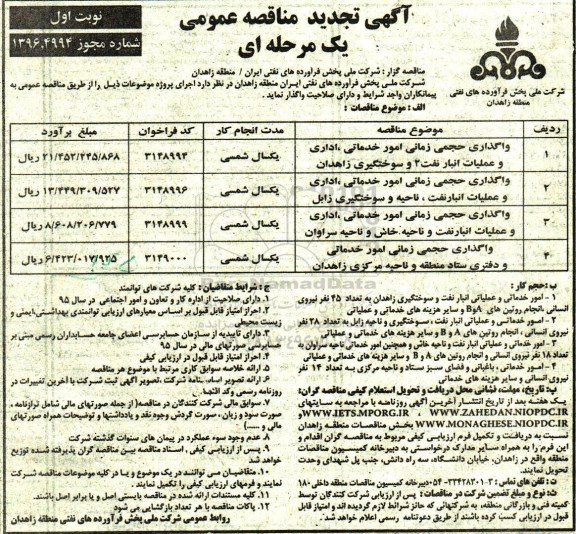 آگهی تجدید مناقصه عمومی
یک مرحله ای
نوبت اول
شماره مجوز ۱۳۹۶.۴۹۹۴
شرکت ملی پخش فرآورده های نفتی
منطقه زاهدان
مناقصه گزار : شرکت ملی پخش فرآورده های نفتی ایران / منطقه زاهدان
شرکت ملی پخش فرآورده های نفتی ایران منطقه زاهدان در نظر دارد اجرای پروژه موضوعات ذیل را از طریق مناقصه عمومی به
پیمانکاران واجد شرایط و دارای صلاحیت واگذار نماید .
الف : موضوع مناقصات :
ردیف موضوع مناقصه مدت انجام کار کد فراخوان مبلغ برآورد
۱ واگذاری حجمی زمانی امور خدماتی ،اداری
و عملیات انبار نفت۲ و سوختگیری زاهدان یکسال شمسی ۳۱۴۸۹۹۴ ۲۱/۴۵۲/۲۴۵/۸۶۸ ریال
۲ واگذاری حجمی زمانی امور خدماتی ،اداری
و عملیات انبارنفت ، ناحیه و سوختگیری زابل یکسال شمسی ۳۱۴۸۹۹۶ ۱۳/۴۴۹/۳۰۹/۵۲۷ ریال
۳ واگذاری حجمی زمانی امور خدماتی ،اداری
و عملیات انبارنفت و ناحیه خاش و ناحیه سراوان یکسال شمسی ۳۱۴۸۹۹۹ ۸/۶۰۸/۲۰۶/۷۷۹ ریال
۴ واگذاری حجمی زمانی امور خدماتی
و دفتری ستاد منطقه و ناحیه مرکزی زاهدان یکسال شمسی ۳۱۴۹۰۰۰ ۶/۴۲۳/۰۱۷/۹۲۵ ریال
ب: حجم کار :
۱ - امور خدماتی و عملیاتی انبار نفت و سوختگیری زاهدان به تعداد ۴۵ نفر نیروی
انسانی ،انجام روتین های A وB و سایر هزینه های خدماتی و عملیاتی
۲ - امور خدماتی و عملیاتی انبار نفت ،سوختگیری و ناحیه زابل به تعداد ۳۸ نفر
نیروی انسانی ، انجام روتین های A و B و سایر هزینه های خدماتی و عملیاتی
۳ - امور خدماتی و عملیاتی انبار نفت و ناحیه خاش و همچنین امور خدماتی ناحیه سراوان به
تعداد ۱۸ نفر نیروی انسانی و انجام روتین های A و B و سایر هزینه های خدماتی و عملیاتی
۴ - امور خدماتی ، باغبانی و فضای سبز ستاد و ناحیه مرکزی به تعداد ۱۴ نفر
نیروی انسانی و سایر هزینه های خدماتی
پ: تاریخ، مهلت، نشانی محل دریافت و تحویل استعلام کیفی مناقصه گران:
یک هفته بعد از تاریخ انتشار آخرین آگهی روزنامه با مراجعه به سایتهای
WWW.IETS.MPORG.IR ، WWW.ZAHEDAN.NIOPDC.IR و
WWW.MONAGHESE.NIOPDC.IR بخش مناقصات منطقه زاهدان
نسبت به دریافت و تکمیل فرم ارزیابی کیفی مربوط به مناقصه گران اقدام و
این فرم را به همراه سایر مدارک درخواستی به دبیرخانه کمیسیون مناقصات
منطقه واقع در زاهدان، خیابان دانشگاه، سه راه دانش، جنب پل شهدای وحدت
تحویل نمایند.
ت : تلفن های تماس : ۳-۳۳۴۲۸۳۰۱-۰۵۴ دبیرخانه کمیسیون مناقصات منطقه داخلی ۱۸۰
ث: نوع و مبلغ تضمین شرکت در مناقصات : پس از ارزیابی شرکت کنندگان توسط
کمیته فنی و بازرگانی منطقه، به شرکتهائی که حائز شرائط لازم گردیده اند و امتیاز قابل
قبول در ارزیابی کسب کرده باشند از طریق دعوتنامه رسمی اعلام خواهد شد.
ج : شرایط متقاضیان : کلیه شرکت های توانمند
۱. دارای صلاحیت از اداره کار و تعاون و امور اجتماعی در سال ۹۵
۲. احراز امتیاز قابل قبول بر اساس معیارهای ارزیابی توانمندی بهداشتی،ایمنی و
زیست محیطی
۳. دارای تأییدیه از سازمان حسابرسی اعضای جامعه حسابداران رسمی مبنی بر
حسابرسی صورتهای مالی در سال ۹۵
۴. احراز امتیاز قابل قبول در ارزیابی کیفی
۵. ارائه خلاصه سوابق کاری مرتبط با موضوع هر مناقصه
۶. ارائه تصویر اساسنامه شرکت، تصویر آگهی ثبت شرکت با آخرین تغییرات در
روزنامه رسمی و کد اقتصادی
۷. سوابق مالی شرکت کنندگان در مناقصه(از جمله صورتهای مالی شامل ترازنامه ،
صورت سود و زیان ، صورت گردش وجوه نقد و یادداشتها و توضیحات همراه صورتهای
مالی و ....)
۸. عدم وجود سوء عملکرد در پیمان های سنوات گذشته شرکت
۹. پس از ارزیابی کیفی ، اسناد مناقصه بین مناقصه گران پذیرفته شده توزیع
خواهد شد
۱۰. متقاضیان می توانند در یک موضوع و یا در کلیه موضوعات مناقصه شرکت
نمایند و فرمهای ارزیابی کیفی را تکمیل نمایند.
۱۱. کلیه مستندات ارائه شده در مناقصه بایستی اصل و یا برابر اصل باشند.
۱۲. پاکات مناقصه با هر تعداد بازگشایی می شود
روابط عمومی شرکت ملی پخش فرآورده های نفتی منطقه زاهدان